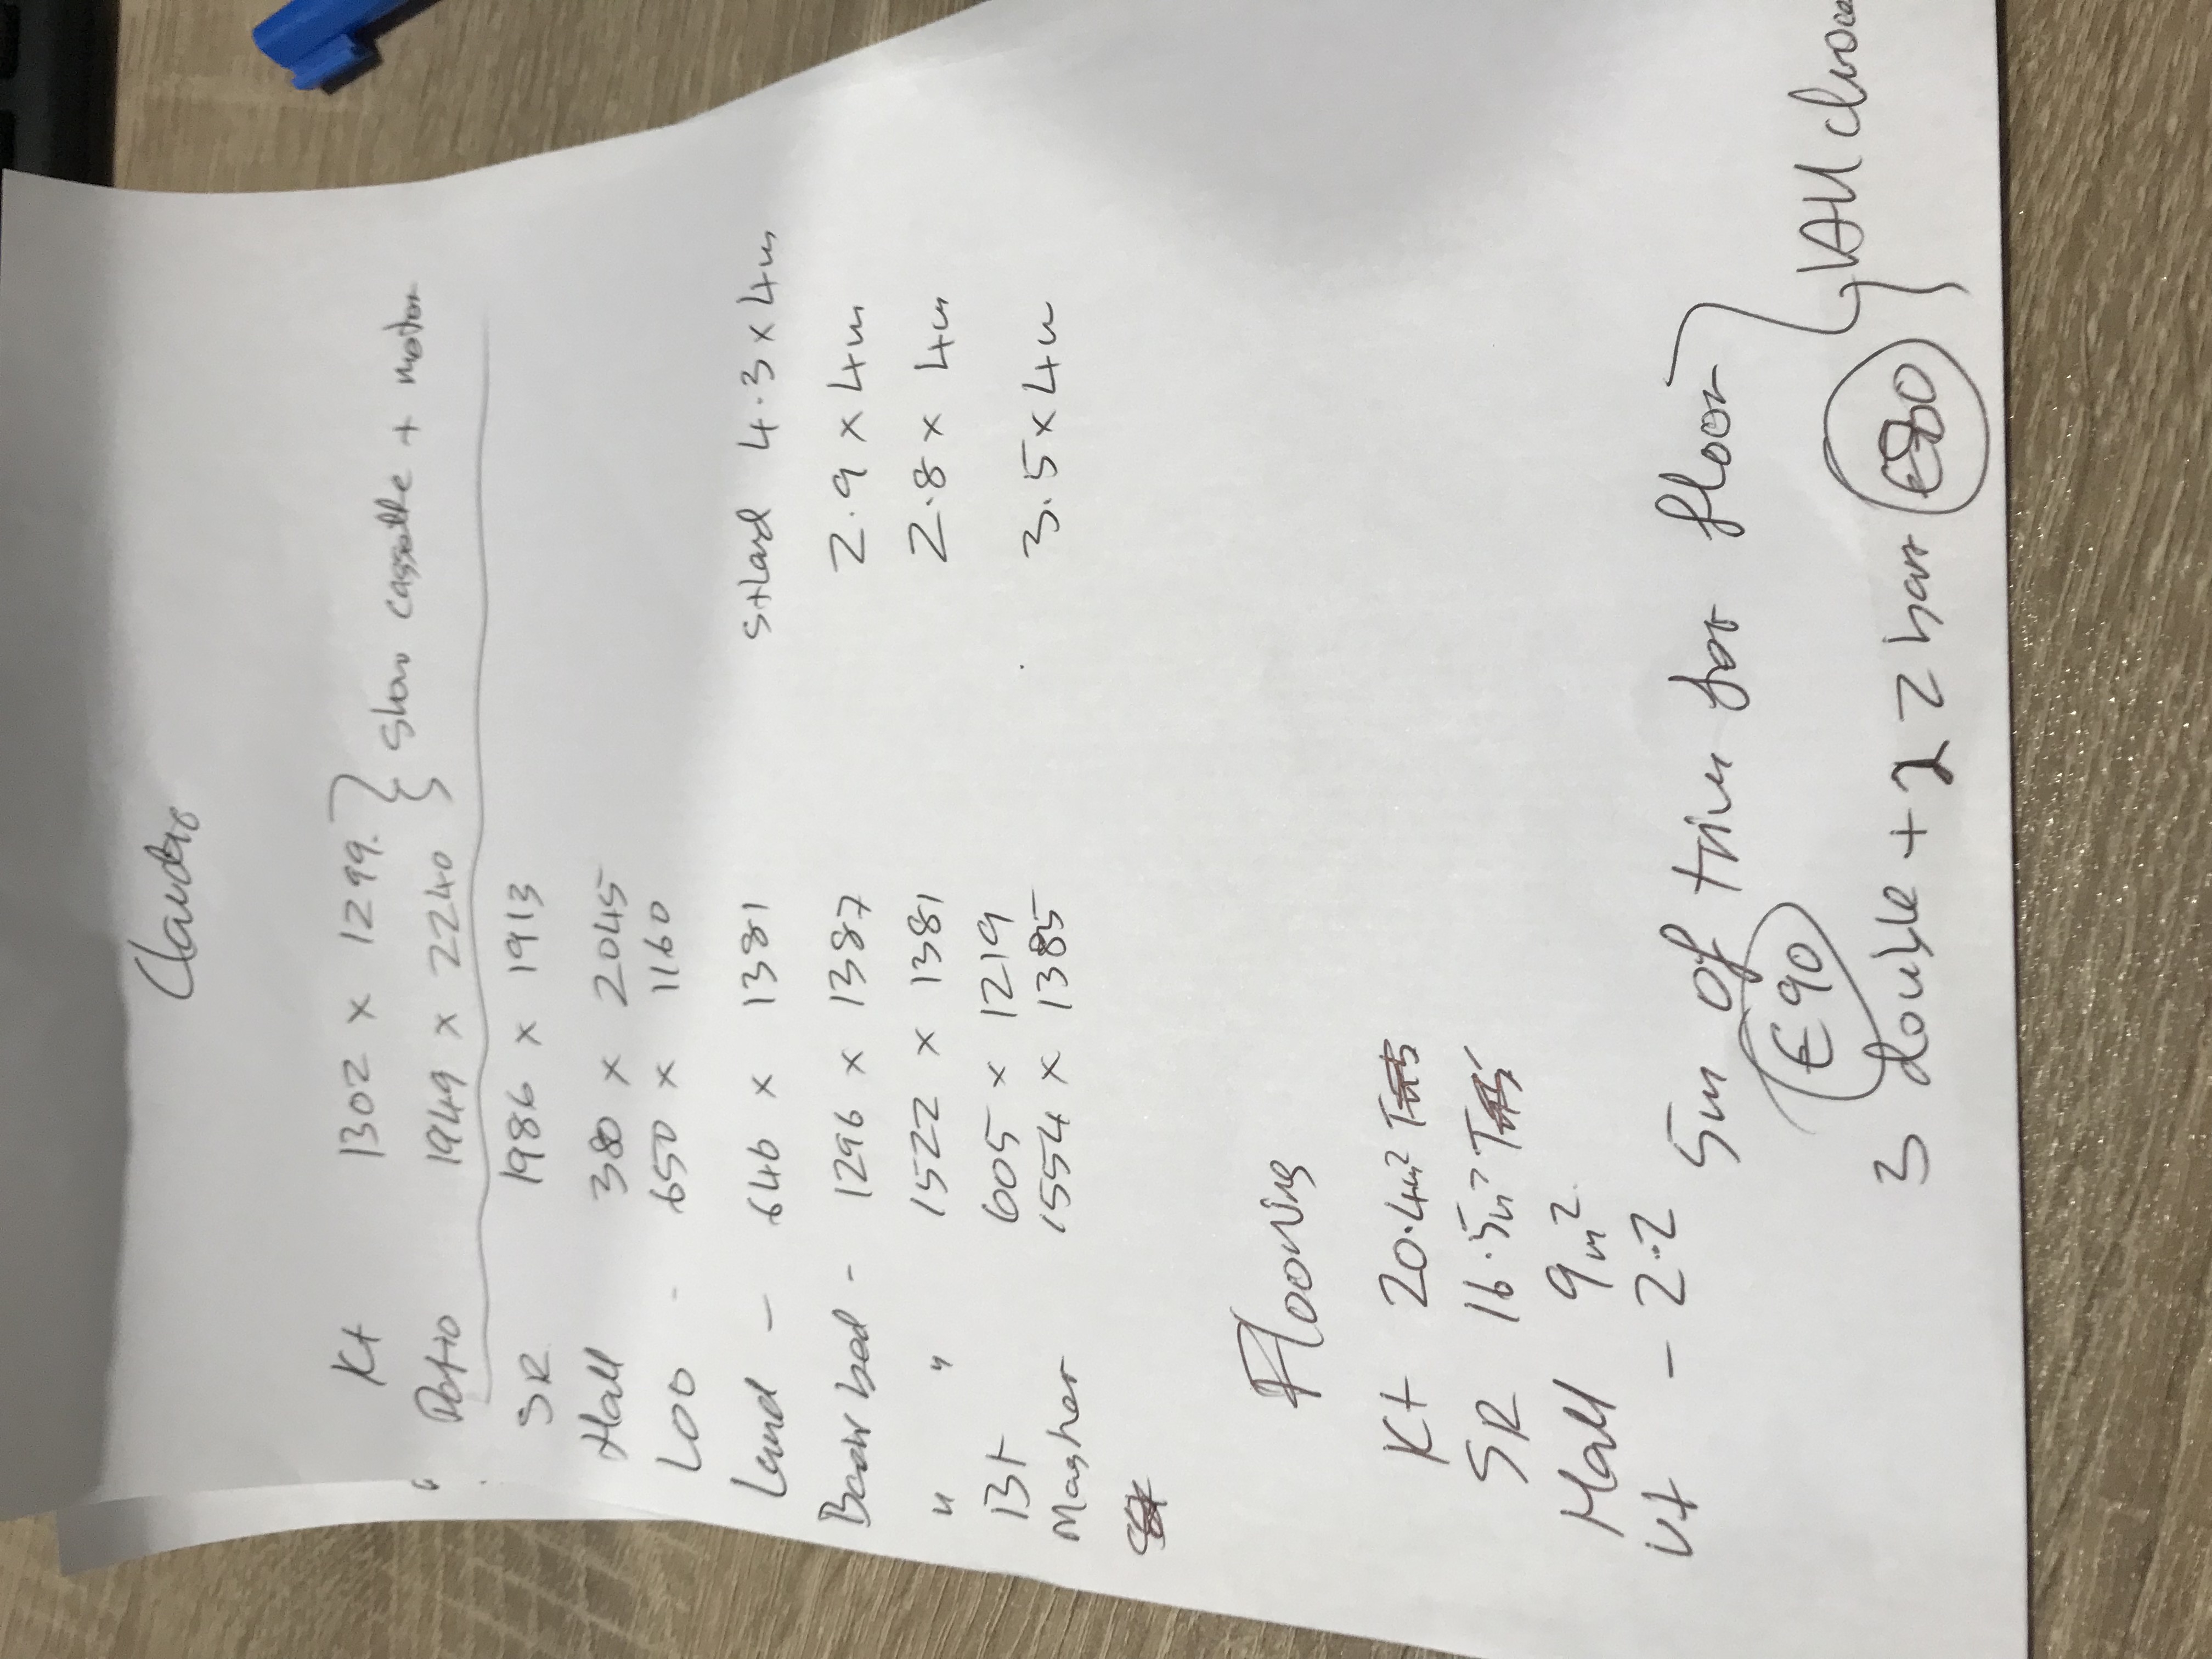 Kt 1302 x 1299. } show cassette + motor
" Patio 1949 x 2240
SR 1986 x 1913
Hall 380 x 2045
Loo - 650 x 1160
Land - 646 x 1381 s+land 4.3 x 4m
bed - 1296 x 1387 2.9 x 4m
" " 1522 x 1381 2.8 x 4m
Bt 605 x 1219
Master 1554 x 1385 3.5 x 4m
Flooring
Kt 20.4m²
SR 16.5m²
Hall 9m²
Ut - 2.2
5m of trim for floor } All
€90
3 double + 2 Z bar